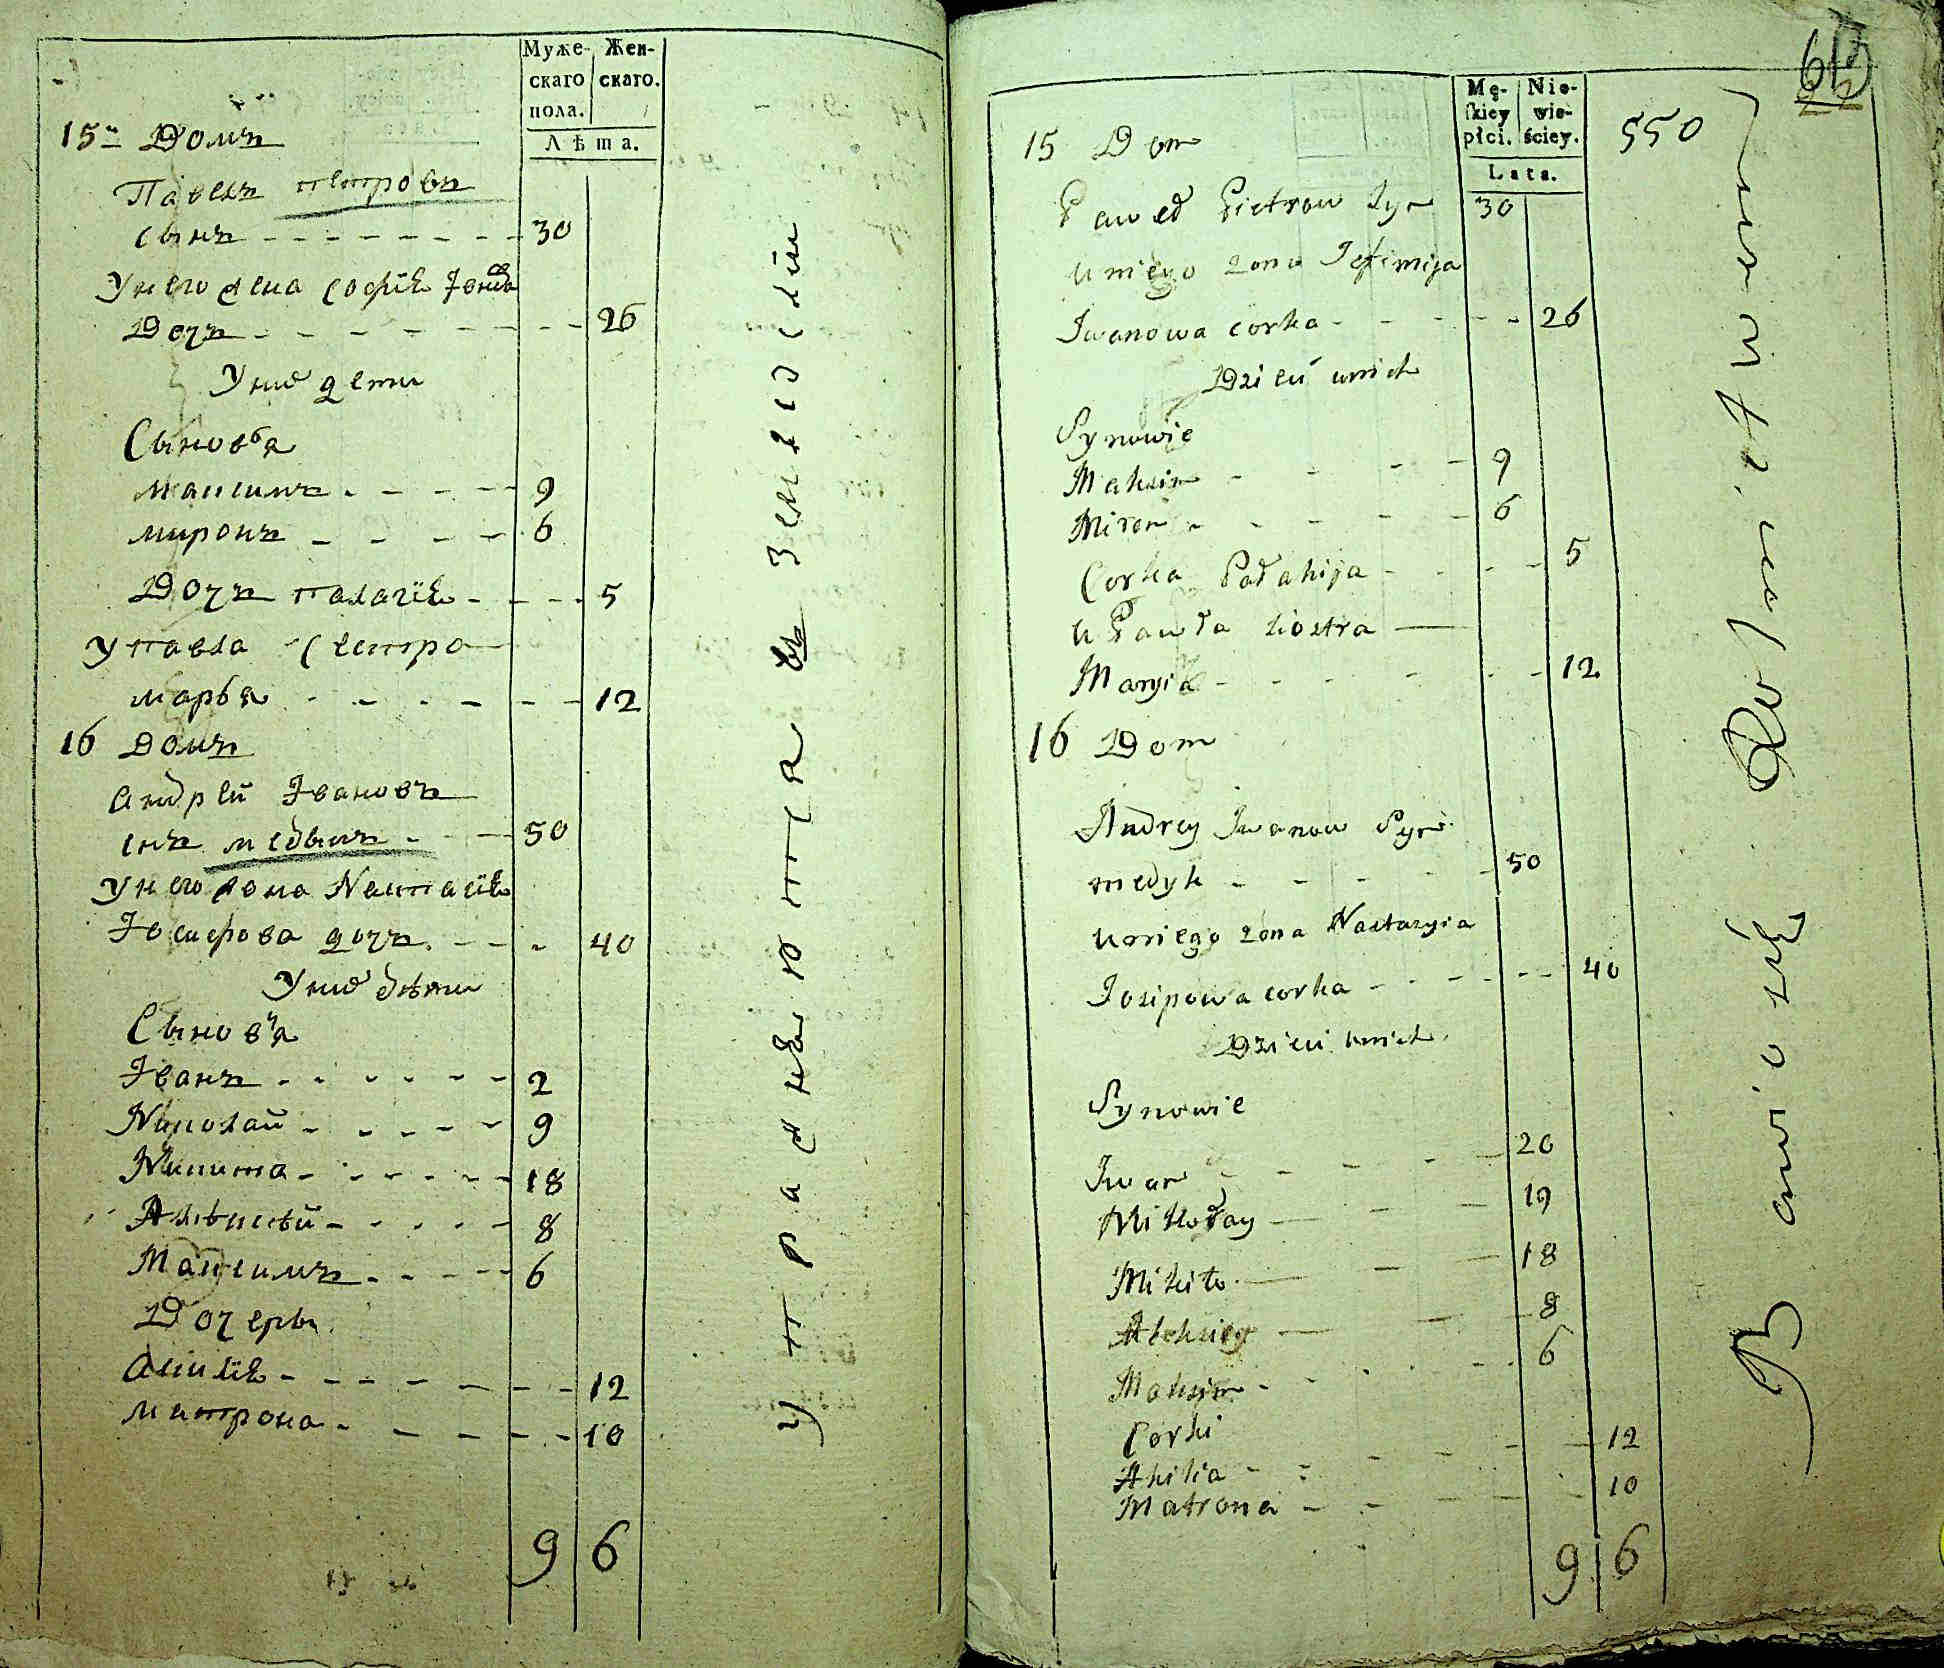 Муже-
скаго
пола.
Жен-
скаго.
Лѣта.
15й Домъ
Павелъ Петровъ
сынъ - - - - - - - - 30
У него жена Софiя Iвано
Дочъ - - - - - - - - 26
У них дети
Сыновья
Максимъ - - - - 9
миронъ - - - - 6
Дочъ палагiя - - - - 5
У павла сестра
марья - - - - - - 12
16 Домъ
Андрей Iвановъ
снъ медыкъ - - - 50
У него жена Настасiя
Iосифова дочъ - - - 40
У них дѣти
Сыновья
Iванъ - - - - - - 2
Николай - - - - - 9
Никита - - - - - - 18
Алѣксѣй - - - - - 8
Максимъ - - - - 6
Дочеры
Акилiя - - - - - - - 12
матрона - - - - - - 10
9 6
упражняются в земледелiи
615
550
Mę-
skiey
płci.
Nie-
wie-
ściey.
Lata.
15 Dom
Paweł Pietrow Syn 30
u niego żona Jefimija
Iwanowa corka - - - - - 26
Dzieci unich
Synowie
Maksim - - - - 9
Miron - - - - - 6
Corka Pałahija - - - - 5
u Pawła siostra —
Maryia - - - - - - - 12
16 Dom
Andrey Iwanow Syn
medyk - - - - - 50
u niego żona Nastazyia
Josipowa corka - - - - - - 40
Dzieci unich
Synowie
Iwan - - - - - 20
Mikołay — - - 19
Mikita — - - 18
Alehsiey — - - 8
Maksim - - - - - 6
Corki
Akilia - - - - - 12
Matrona - - - - - 10
9 6
Bawio się Rolnictwem